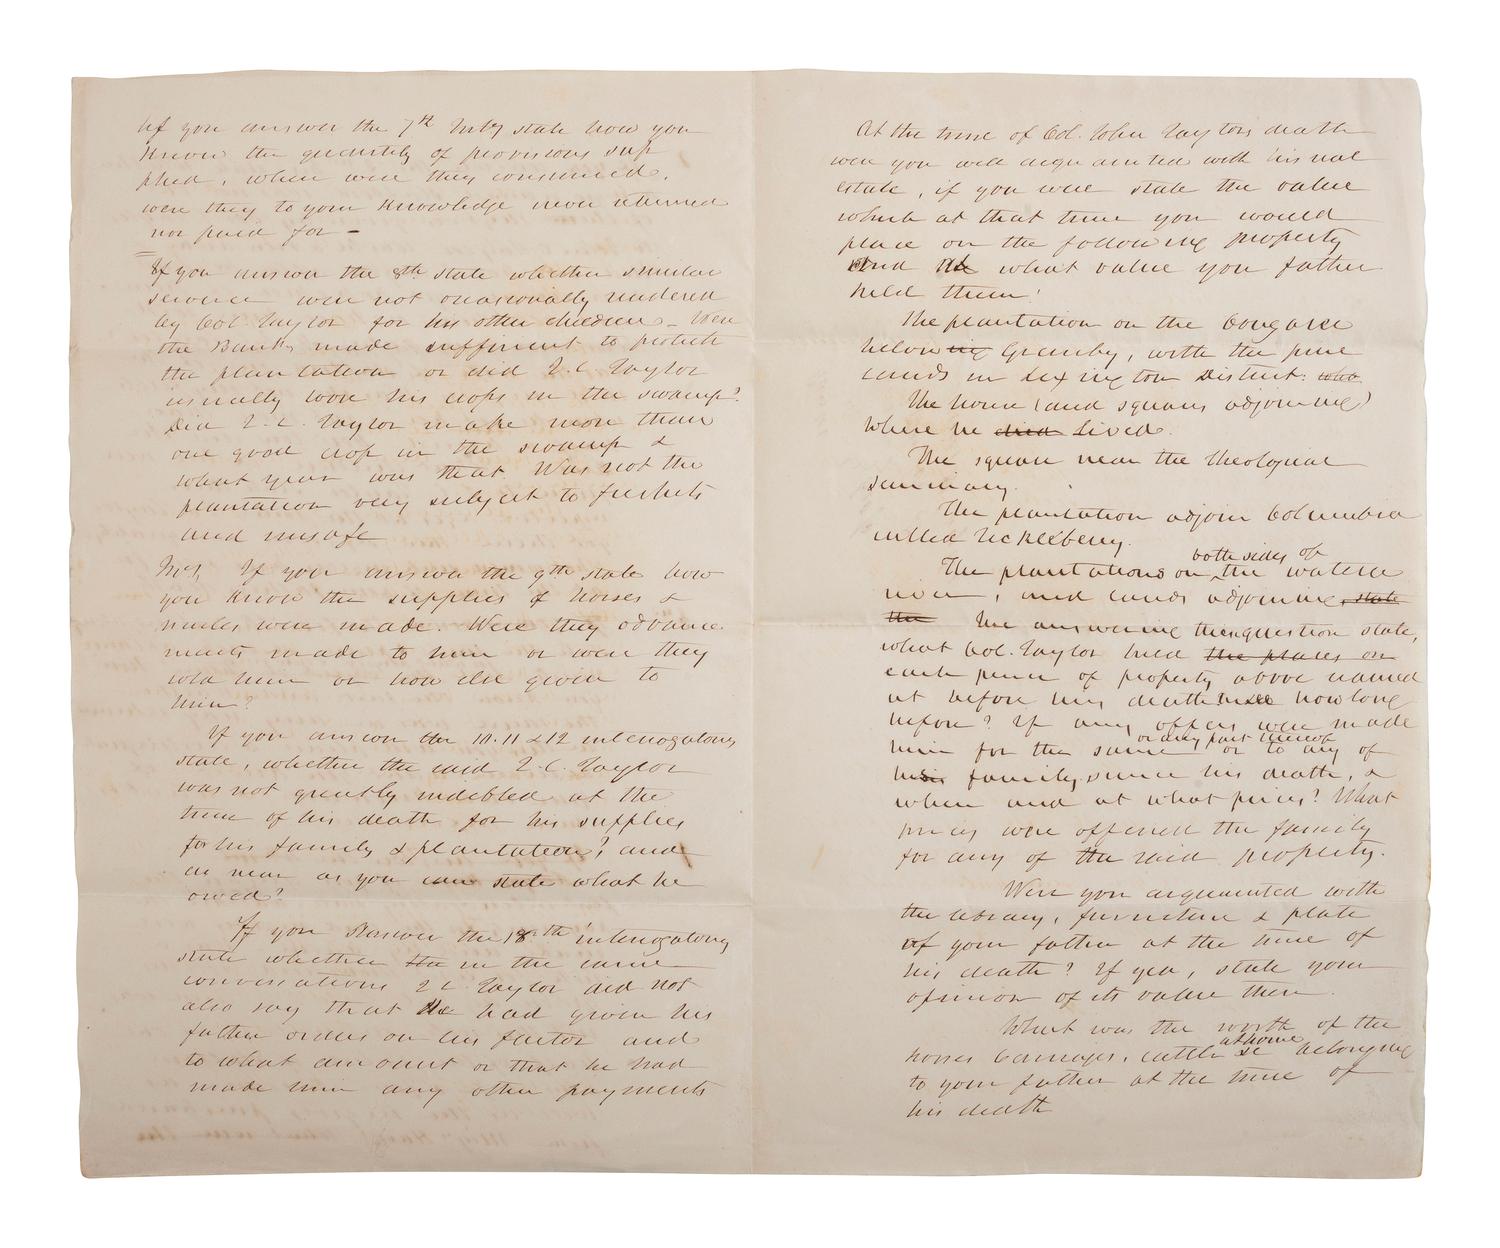 If you answer the 7th Inty state how you
know the quantity of provisions sup
plied, when were they consumed,
were they to your knowledge never returned
nor paid for -
If you answer the 8th state whether similar
services were not occasionally rendered
by Col. Taylor for his other children - Were
the Banks made sufficient to protect
the plantation or did T.C. Taylor
usually lose his crops in the swamp?
Did T. C. Taylor make more than
one good crop in the swamp &
what year was that Was not the
plantation very subject to freshets
and unsafe
If you answer the 9th state how
you know the supplies of horses &
mules were made. Were they advance
ments made to him or were they
sold him or how else given to
him?
If you answer the 10. 11 & 12 interrogatory
state, whether the said T. C. Taylor
was not greatly indebted at the
time of his death for his supplies
for his family & plantation? and
as near as you can state what he
owed?
If you answer the 18th interrogatory
state whether the in the same
conversations T C Taylor did not
also say that he had given his
father orders on his factor and
to what amount or that he had
made him any other payments
At the time of Col. John Taylors death
were you well acquainted with his real
estate, if you were state the value
which at that time you would
place on the following property
and at what value your father
held them:
The plantation on the Congaree
below Granby, with the pine
lands in Lexington District.
The house (and squares adjoining)
where he died Lived.
The square near the Theological
seminary.
The plantation adjoin Columbia
called Hickleberry.
both sides of
The plantations on the wateree
river, and lands adjoining, state
the In answering this question state,
what Col. Taylor held the places on
each piece of property above named
at before his death how long
before? If any offers were made
or any part thereof
him for the same or to any of
his family, since his death, &
when and at what prices? What
prices were offered the family
for any of the said property.
Were you acquainted with
the library, furniture & plate
of your father at the time of
his death? If yea, state your
opinion of its value then.
What was the worth of the
at home
horses Carriages, cattle &c belonging
to your father at the time of
his death